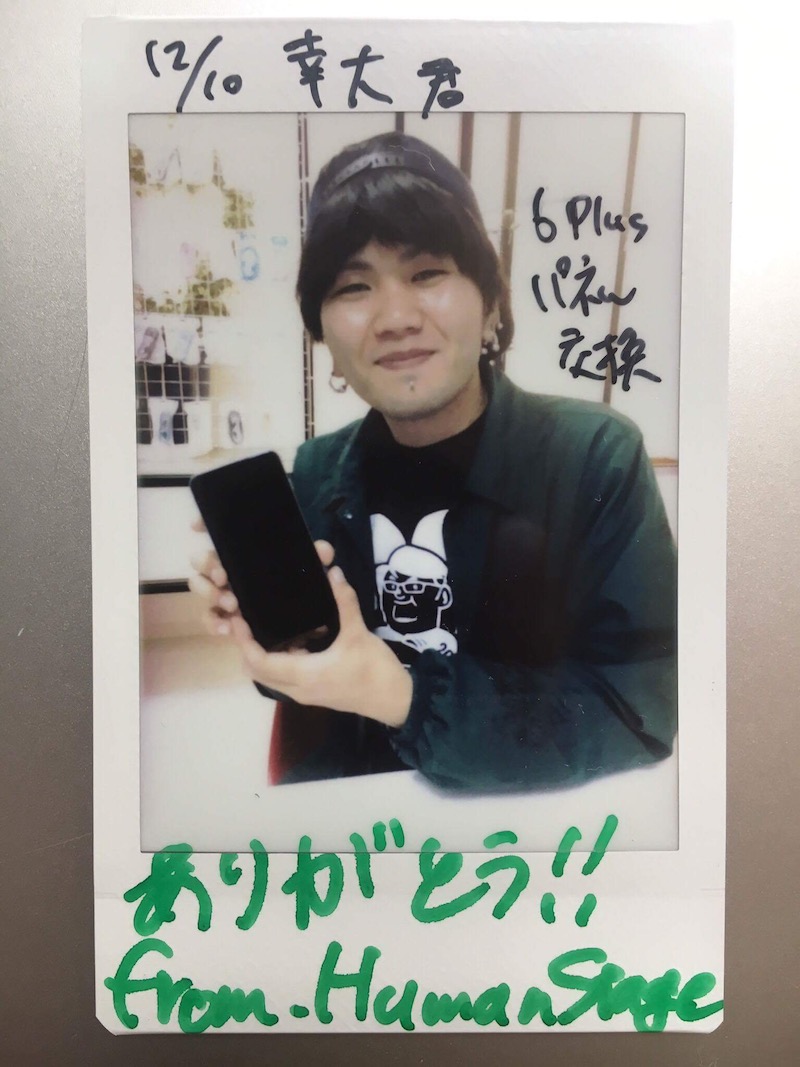 12/10 幸大君
6 Plus
パネル
交換
ありがとう!!
from. Human Stage